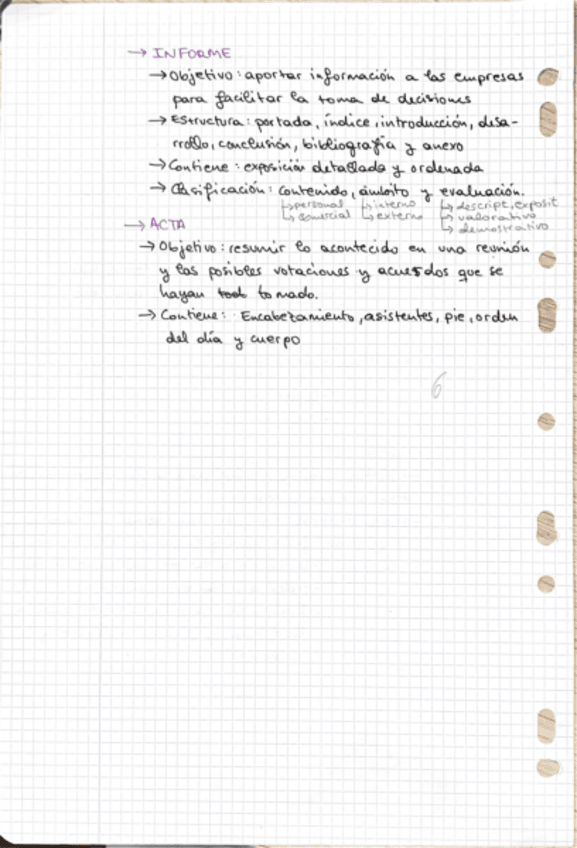 → INFORME
→ Objetivo: aportar información a las empresas
para facilitar la toma de decisiones
→ Estructura: portada, índice, introducción, desa-
rrollo, conclusión, bibliografía y anexo
→ Contiene: exposición detallada y ordenada
→ Clasificación: contenido, ámbito y evaluación.
↳ personal ↳ interno ↳ descript, exposit
↳ comercial ↳ externo ↳ valorativo
↳ demostrativo
→ ACTA
→ Objetivo: resumir lo acontecido en una reunión
y las posibles votaciones y acuerdos que se
hayan tomado.
→ Contiene: Encabezamiento, asistentes, pie, orden
del día y cuerpo
6